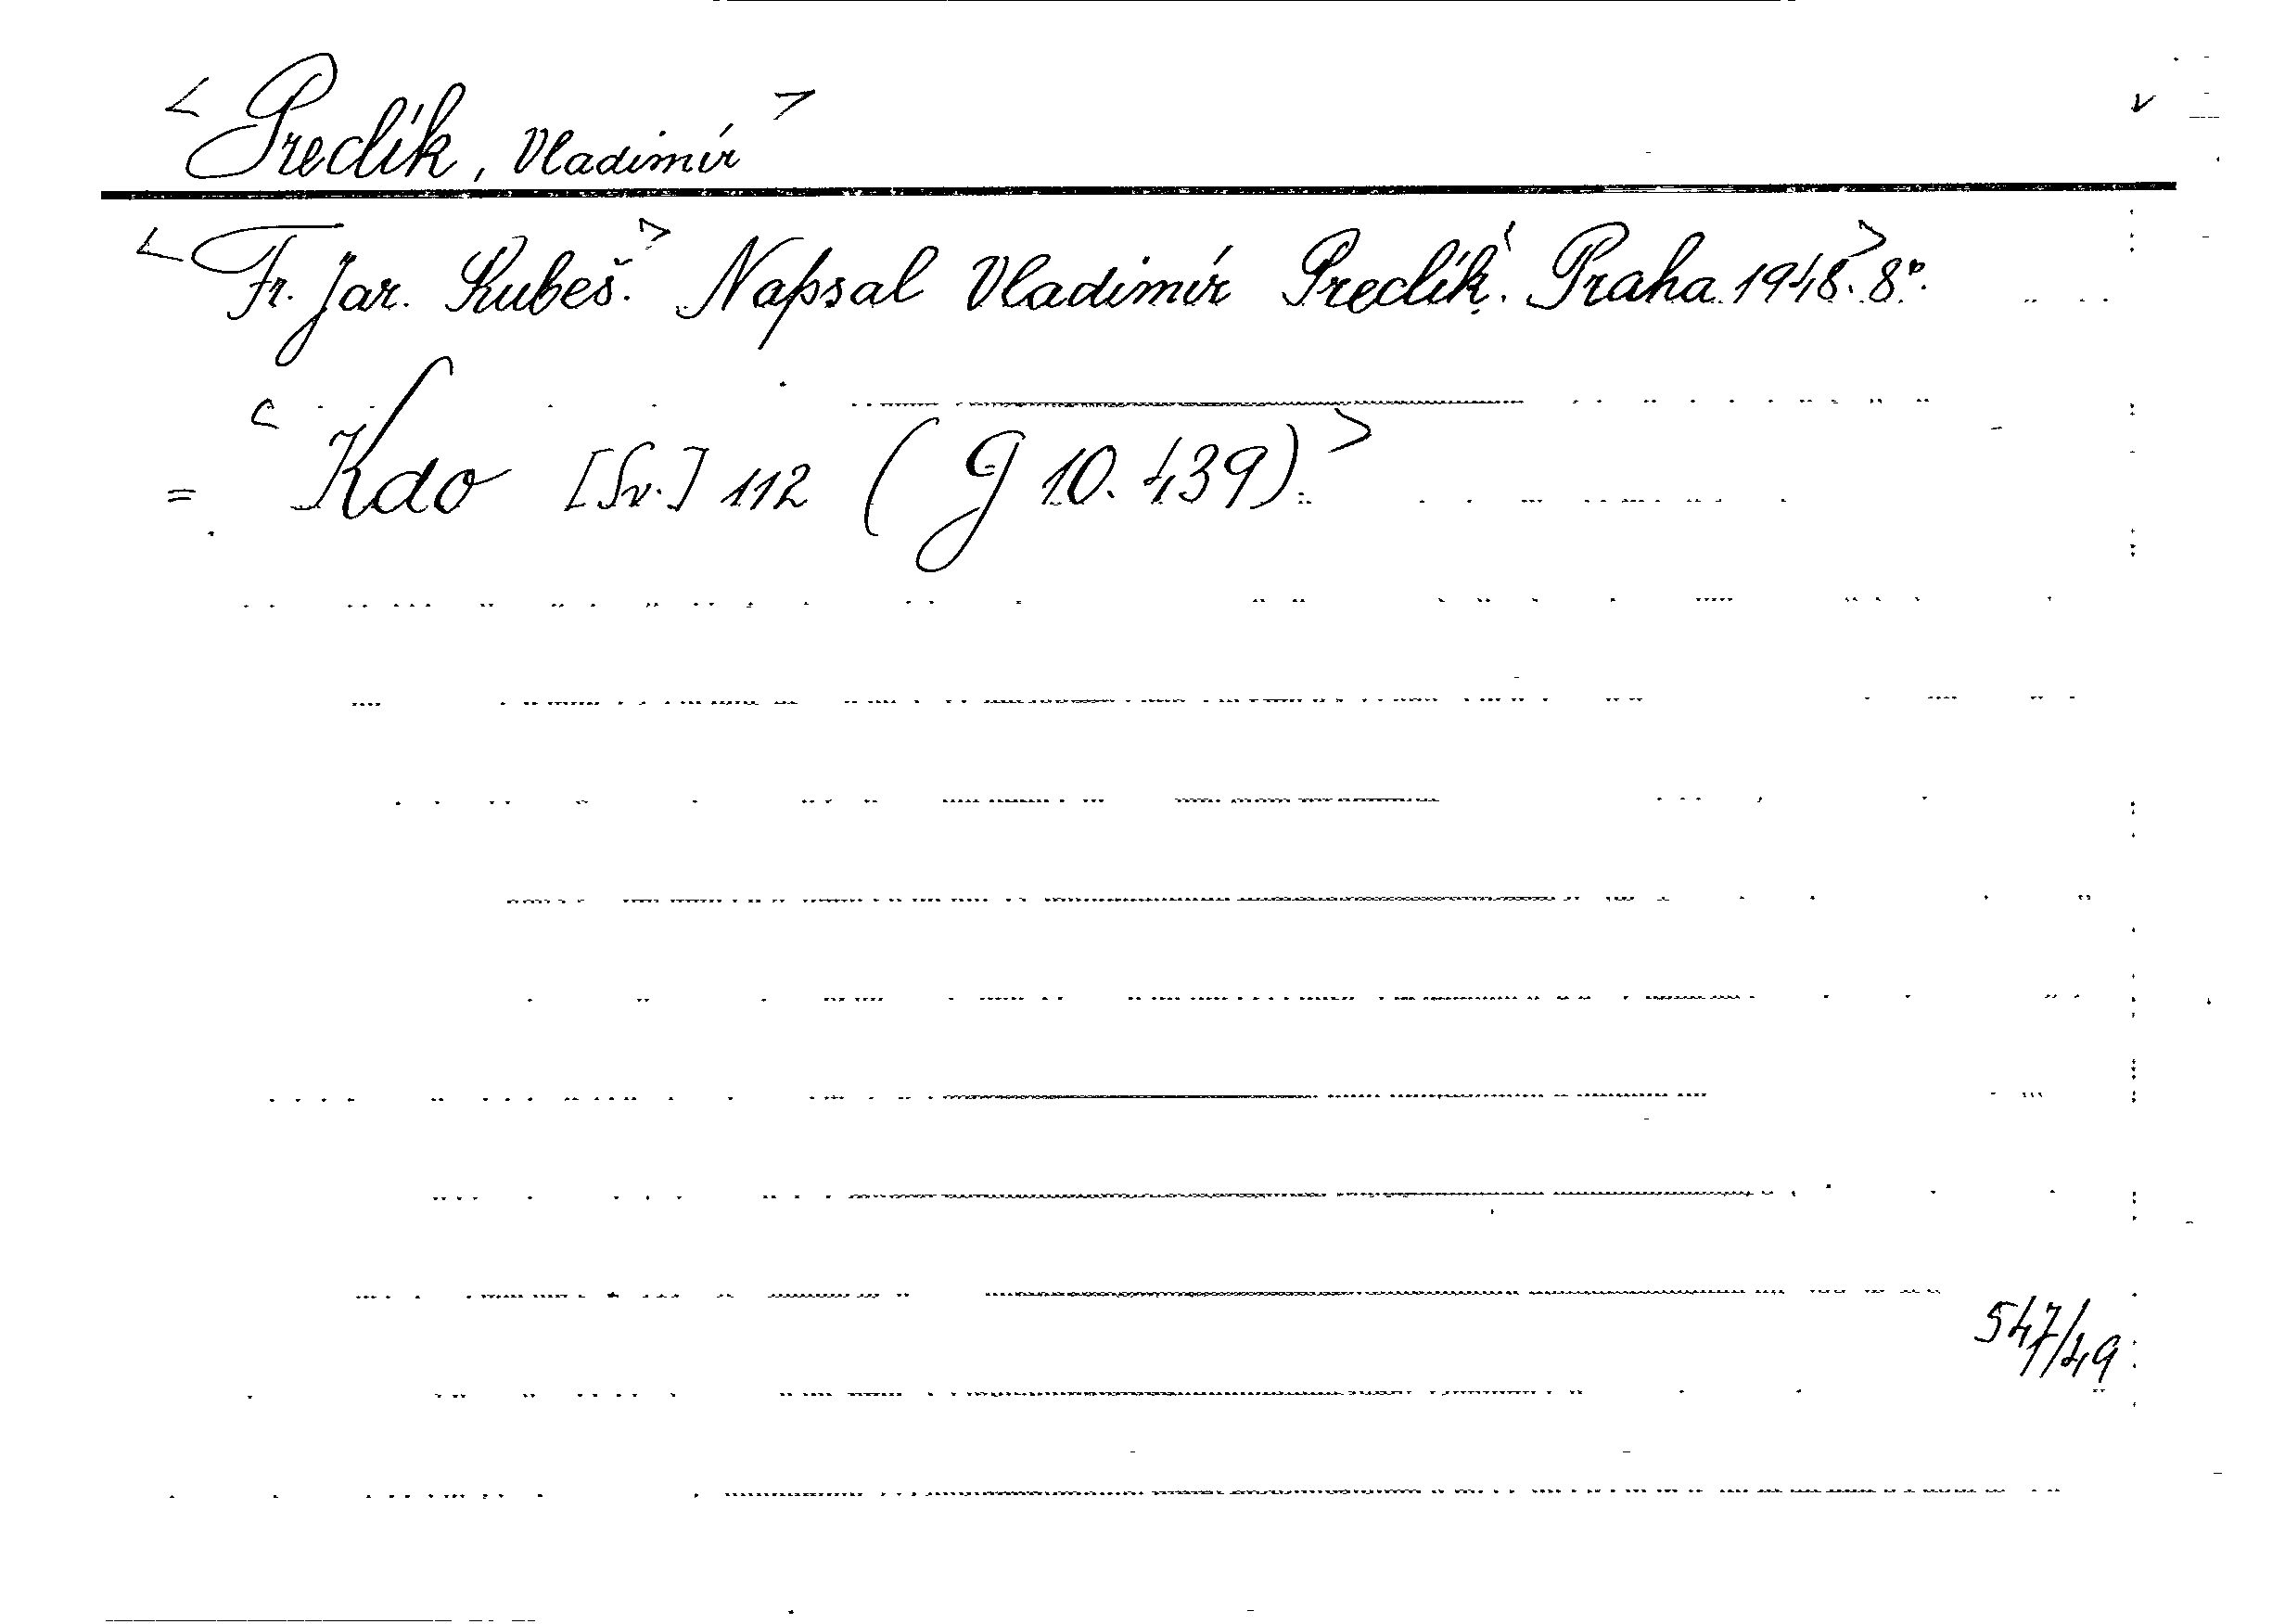 < Predík, Vladimír > v
< Fr. Jar. Kubeš.> Napsal Vladimír Predík.< Praha 1948.> 8°.
< = Kdo [Sv.] 112 (G 10.439).>
547/49